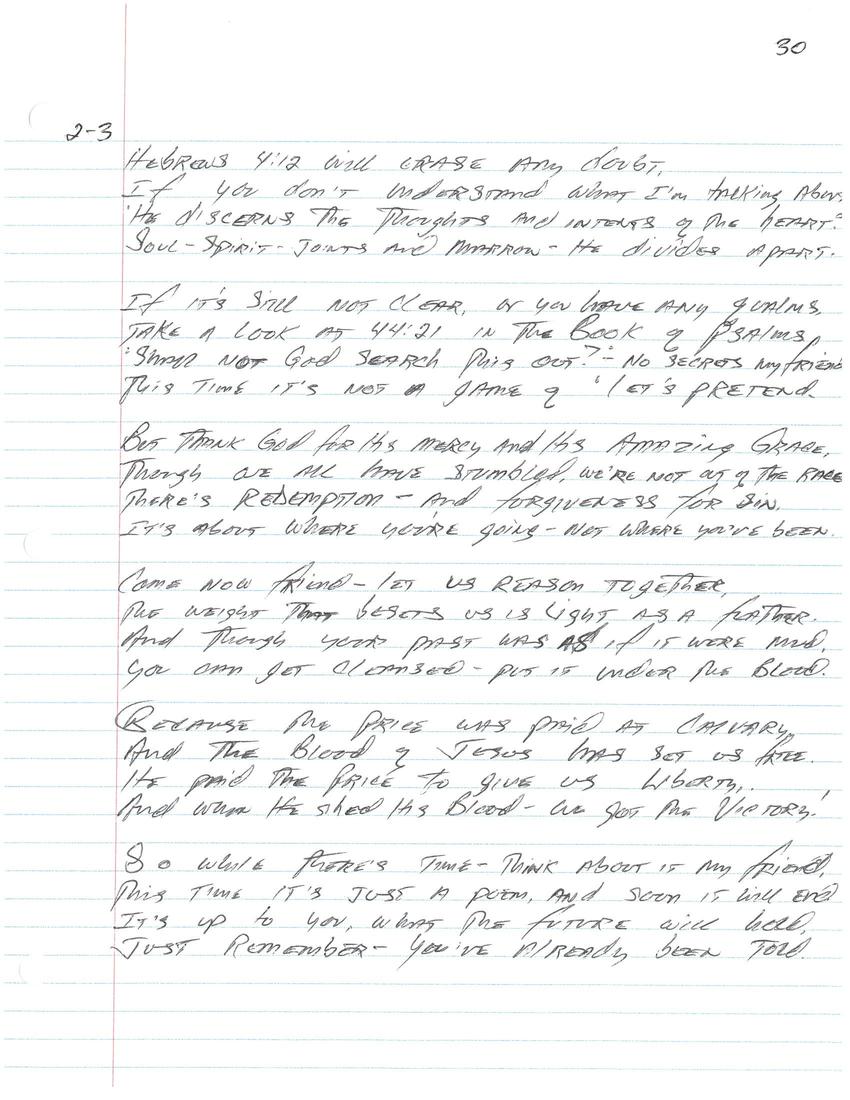 30
2-3
Hebrews 4:12 will erase any doubt,
If you don't understand what I'm talking About
"He discerns the thoughts and intents of the heart."
Soul - Spirit - Joints and Marrow - He divides apart.
If it's still not clear, or you have any qualms,
Take a look at 44:21 in the Book of Psalms,
"Shall not God search this out?" - No secrets my friend
This time it's not a game of "let's pretend.
But thank God for His mercy and His Amazing Grace,
Though we all have stumbled, we're not out of the race
There's Redemption - and forgiveness for sin.
It's about where you're going - not where you've been.
Come now friend - let us reason together,
The weight that besets us is light as a feather.
And though your past was as if it were mud,
You can get cleansed - put it under the Blood.
Because the price was paid at Calvary,
And the Blood of Jesus has set us free.
He paid the price to give us liberty,
And when He shed His Blood - we got the Victory!
So while there's time - think about it my friend,
This time it's just a poem, and soon it will end
It's up to you, what the future will hold,
Just Remember - you've already been told.